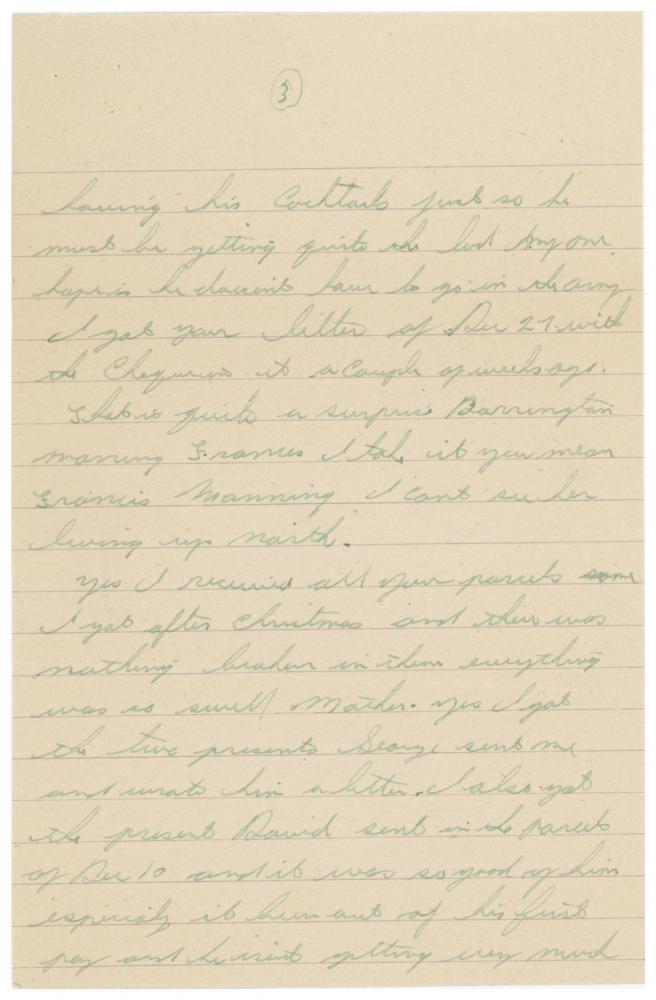 3
having his Cocktails just so he
must be getting quite the lad My one
hope is he doesent have to go in the army
I got your letter of Dec 27. with
the Cheque in it a couple of weeks ago.
That is quite a surprise Barrington
marring Frances I take it you mean
Francis Manning I cant see her
living up north.
yes I received all your parcels some
I got after Christmas and there was
nothing broken in them everything
was so swell Mother. yes I got
the two presents George sent me
and wrote him a letter. I also got
the present David sent in the parcel
of Dec 10 and it was so good of him
especialy it been out of his first
pay and he isent getting very much